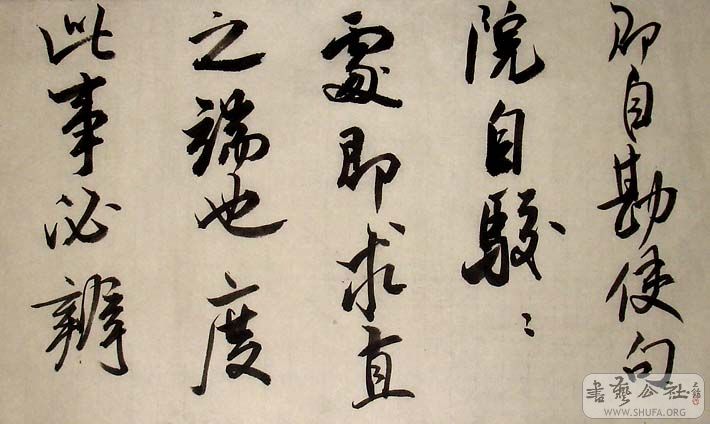 即自勘使句
院自驳〻
处即求直
之端也度
此事必辨
書藝公社
WWW.SHUFA.ORG